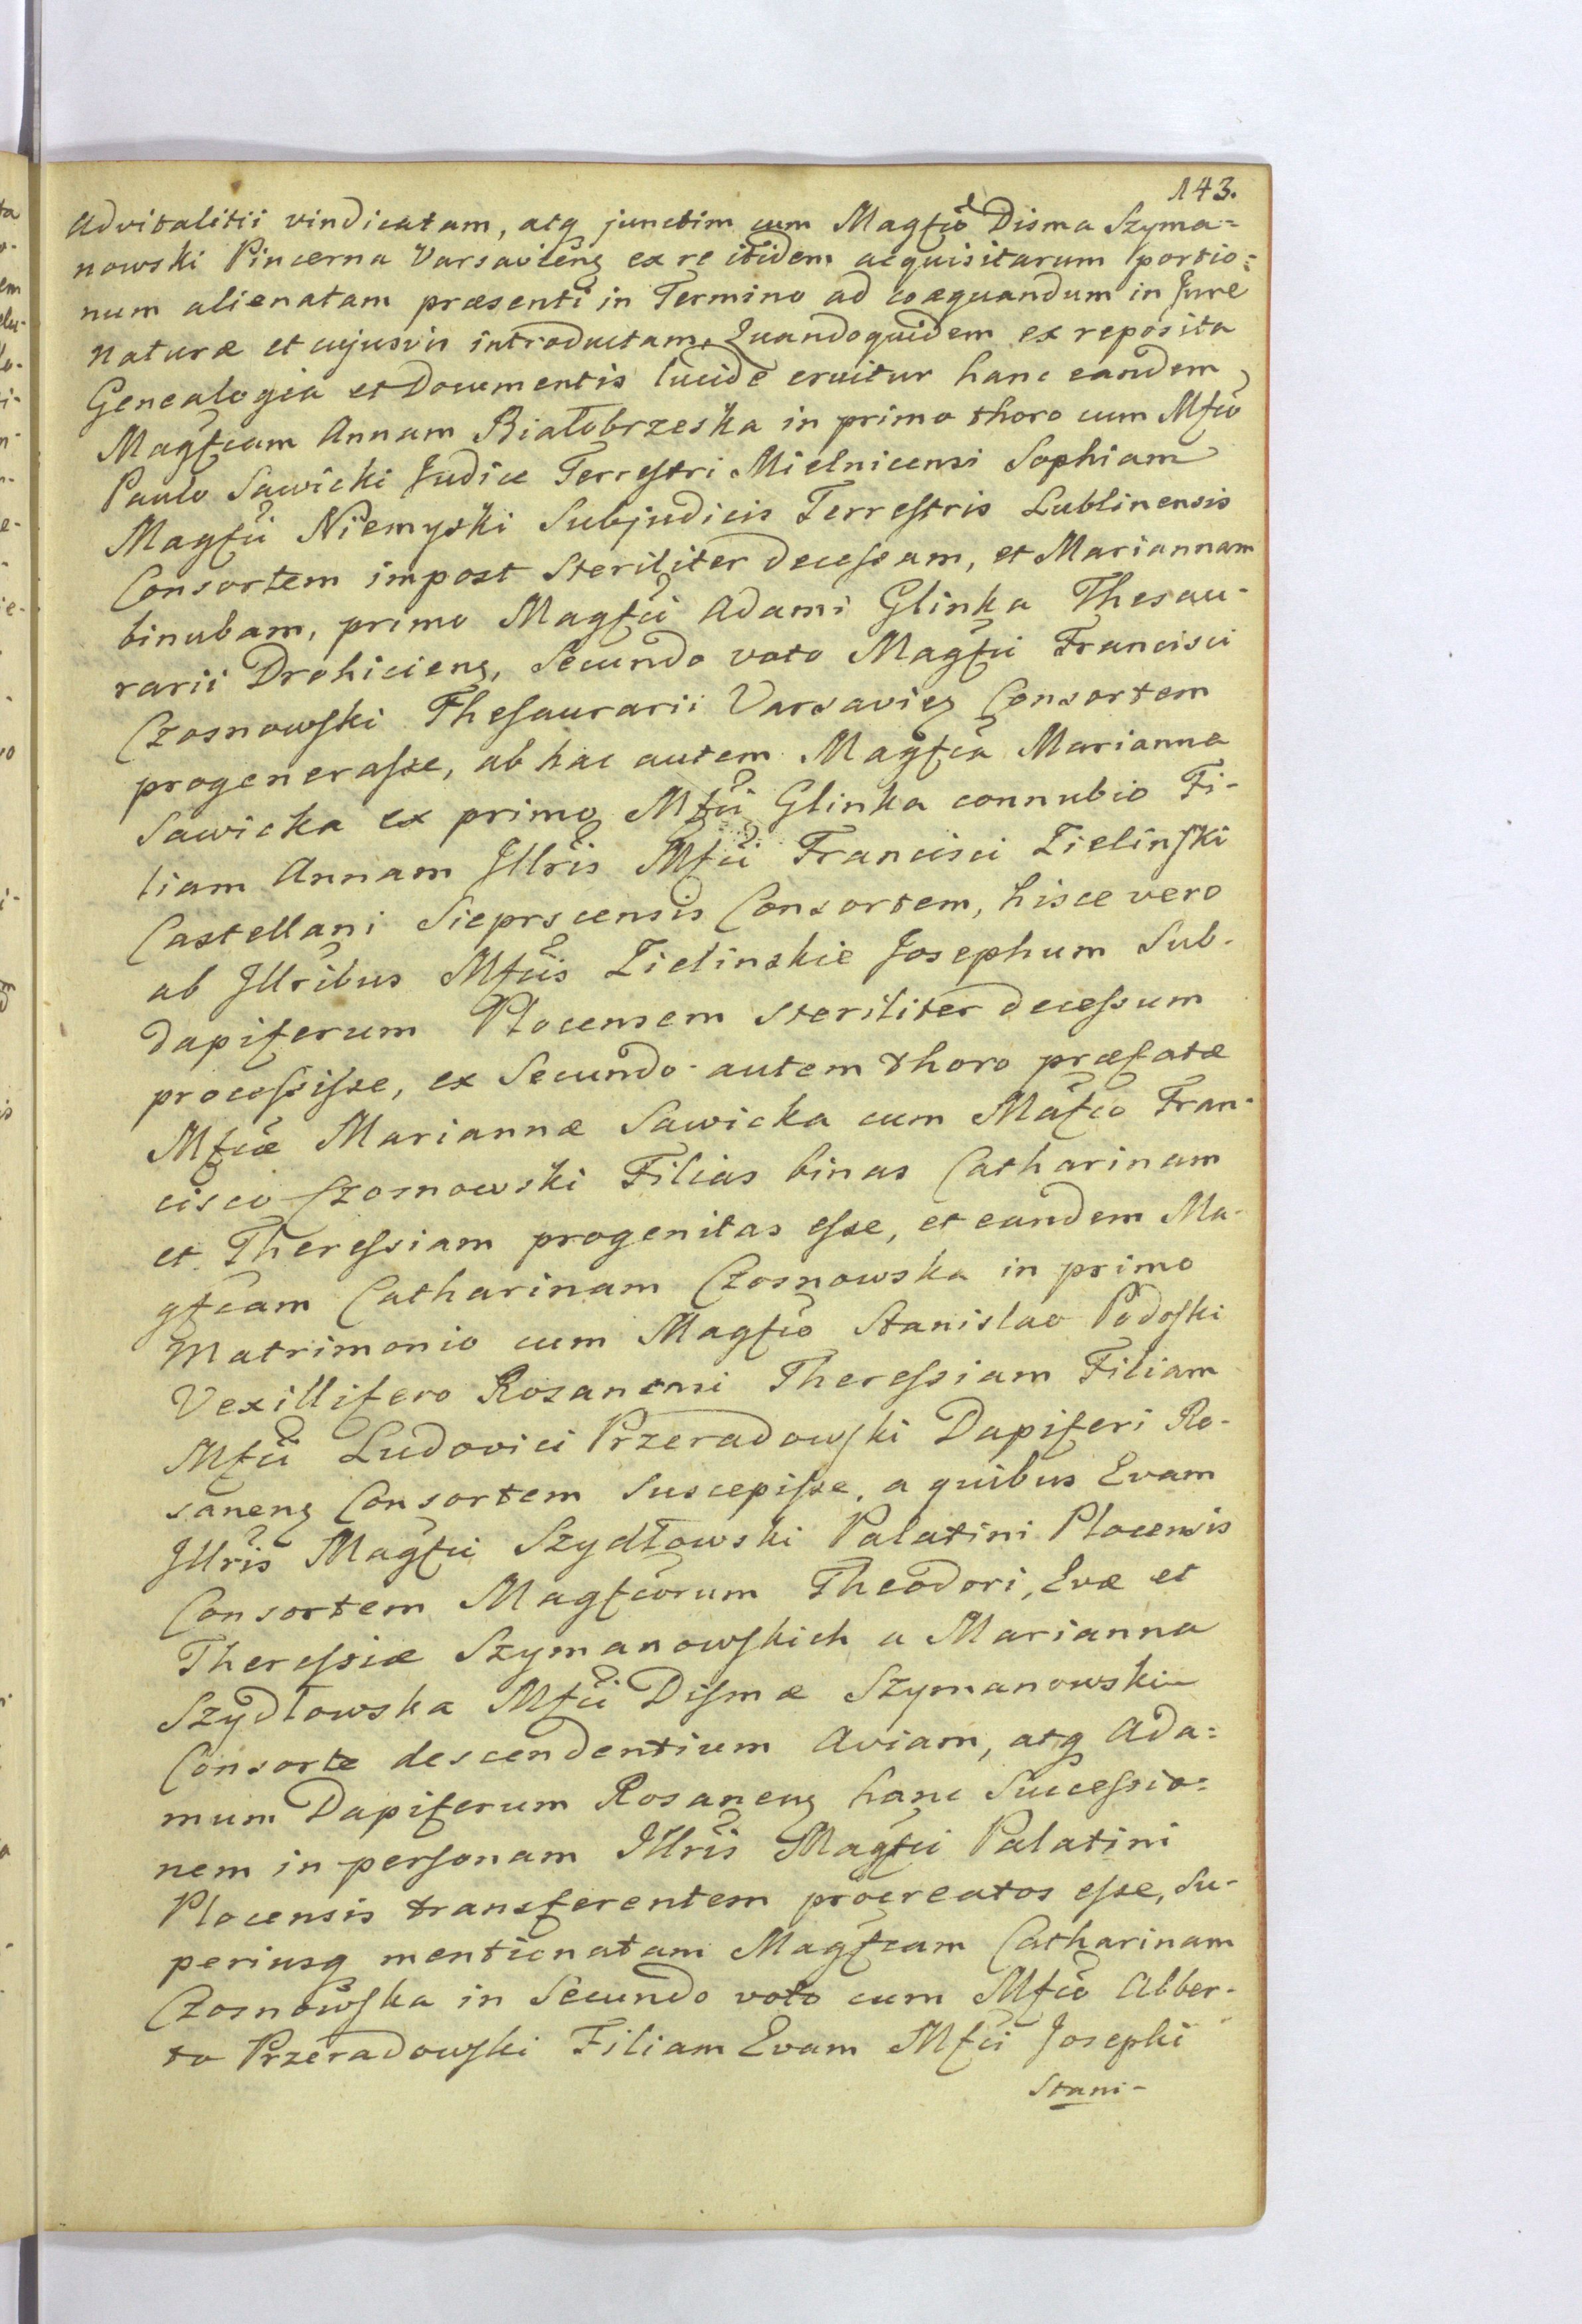 143.
Advitalitii vindicatam, atq junctim cum Magfco Disma Szyma=
nowski Pincerna Varsavieng ex re itidem acquisitarum portio=
num alienatam præsenti in Termino ad coæquandum in Jure
Naturæ et cujusvis introductam. Quandoquidem ex reposita
Genealogia et Documentis lucide eruitur hanc eandem
Magfcam Annam Białobrzeska in primo thoro cum Mfco
Paulo Sawicki Judice Terrestri Mielnicensi Sophiam
Magfci Niemyski Subjudicis Terrestris Lublinensis
Consortem impost steriliter decessam, et Mariannam
binubam, primo Magfci Adami Glinka Thesau-
rarii Drohicieng, Secundo voto Magfci Francisci
Czosnowski Thesaurarii Varsavieg Consortem
progenerasse, ab hac autem Magfca Marianna
Sawicka ex primo Mfci Glinka connubio Fi-
liam Annam Jllris Mfci Francisci Zielinski
Castellani Sieprscensis Consortem, hisce vero
ab Jllribus Mfcis Zielinskie Josephum Sub-
dapiferum Plocensem steriliter decessum
processisse, ex Secundo autem thoro præfatæ
Mfcæ Mariannæ Sawicka cum Mafco Fran-
cisco Czosnowski Filias binas Catharinam
et Theressiam progenitas esse, et eandem Ma-
gfcam Catharinam Czosnowska in primo
Matrimonio cum Magfco Stanislao Podoski
Vexillifero Rosanensi Theressiam Filiam
Mfci Ludovici Przeradowski Dapiferi Ro-
saneng Consortem suscepisse, a quibus Evam
Jllris Magfci Szydłowski Palatini Plocensis
Consortem Magfcorum Theodori, Evæ et
Theressiæ Szymanowskich a Marianna
Szydłowska Mfci Dismæ Szymanowski
Consorte descendentium Aviam, atq Ada=
mum Dapiferum Rosaneng hanc Successio=
nem in personam Jllris Magfci Palatini
Plocensis transferentem procreatos esse, su-
periusq mentionatam Magfcam Catharinam
Czosnowska in Secundo voto cum Mfco Alber-
to Przeradowski Filiam Evam Mfci Josephi
Stani-